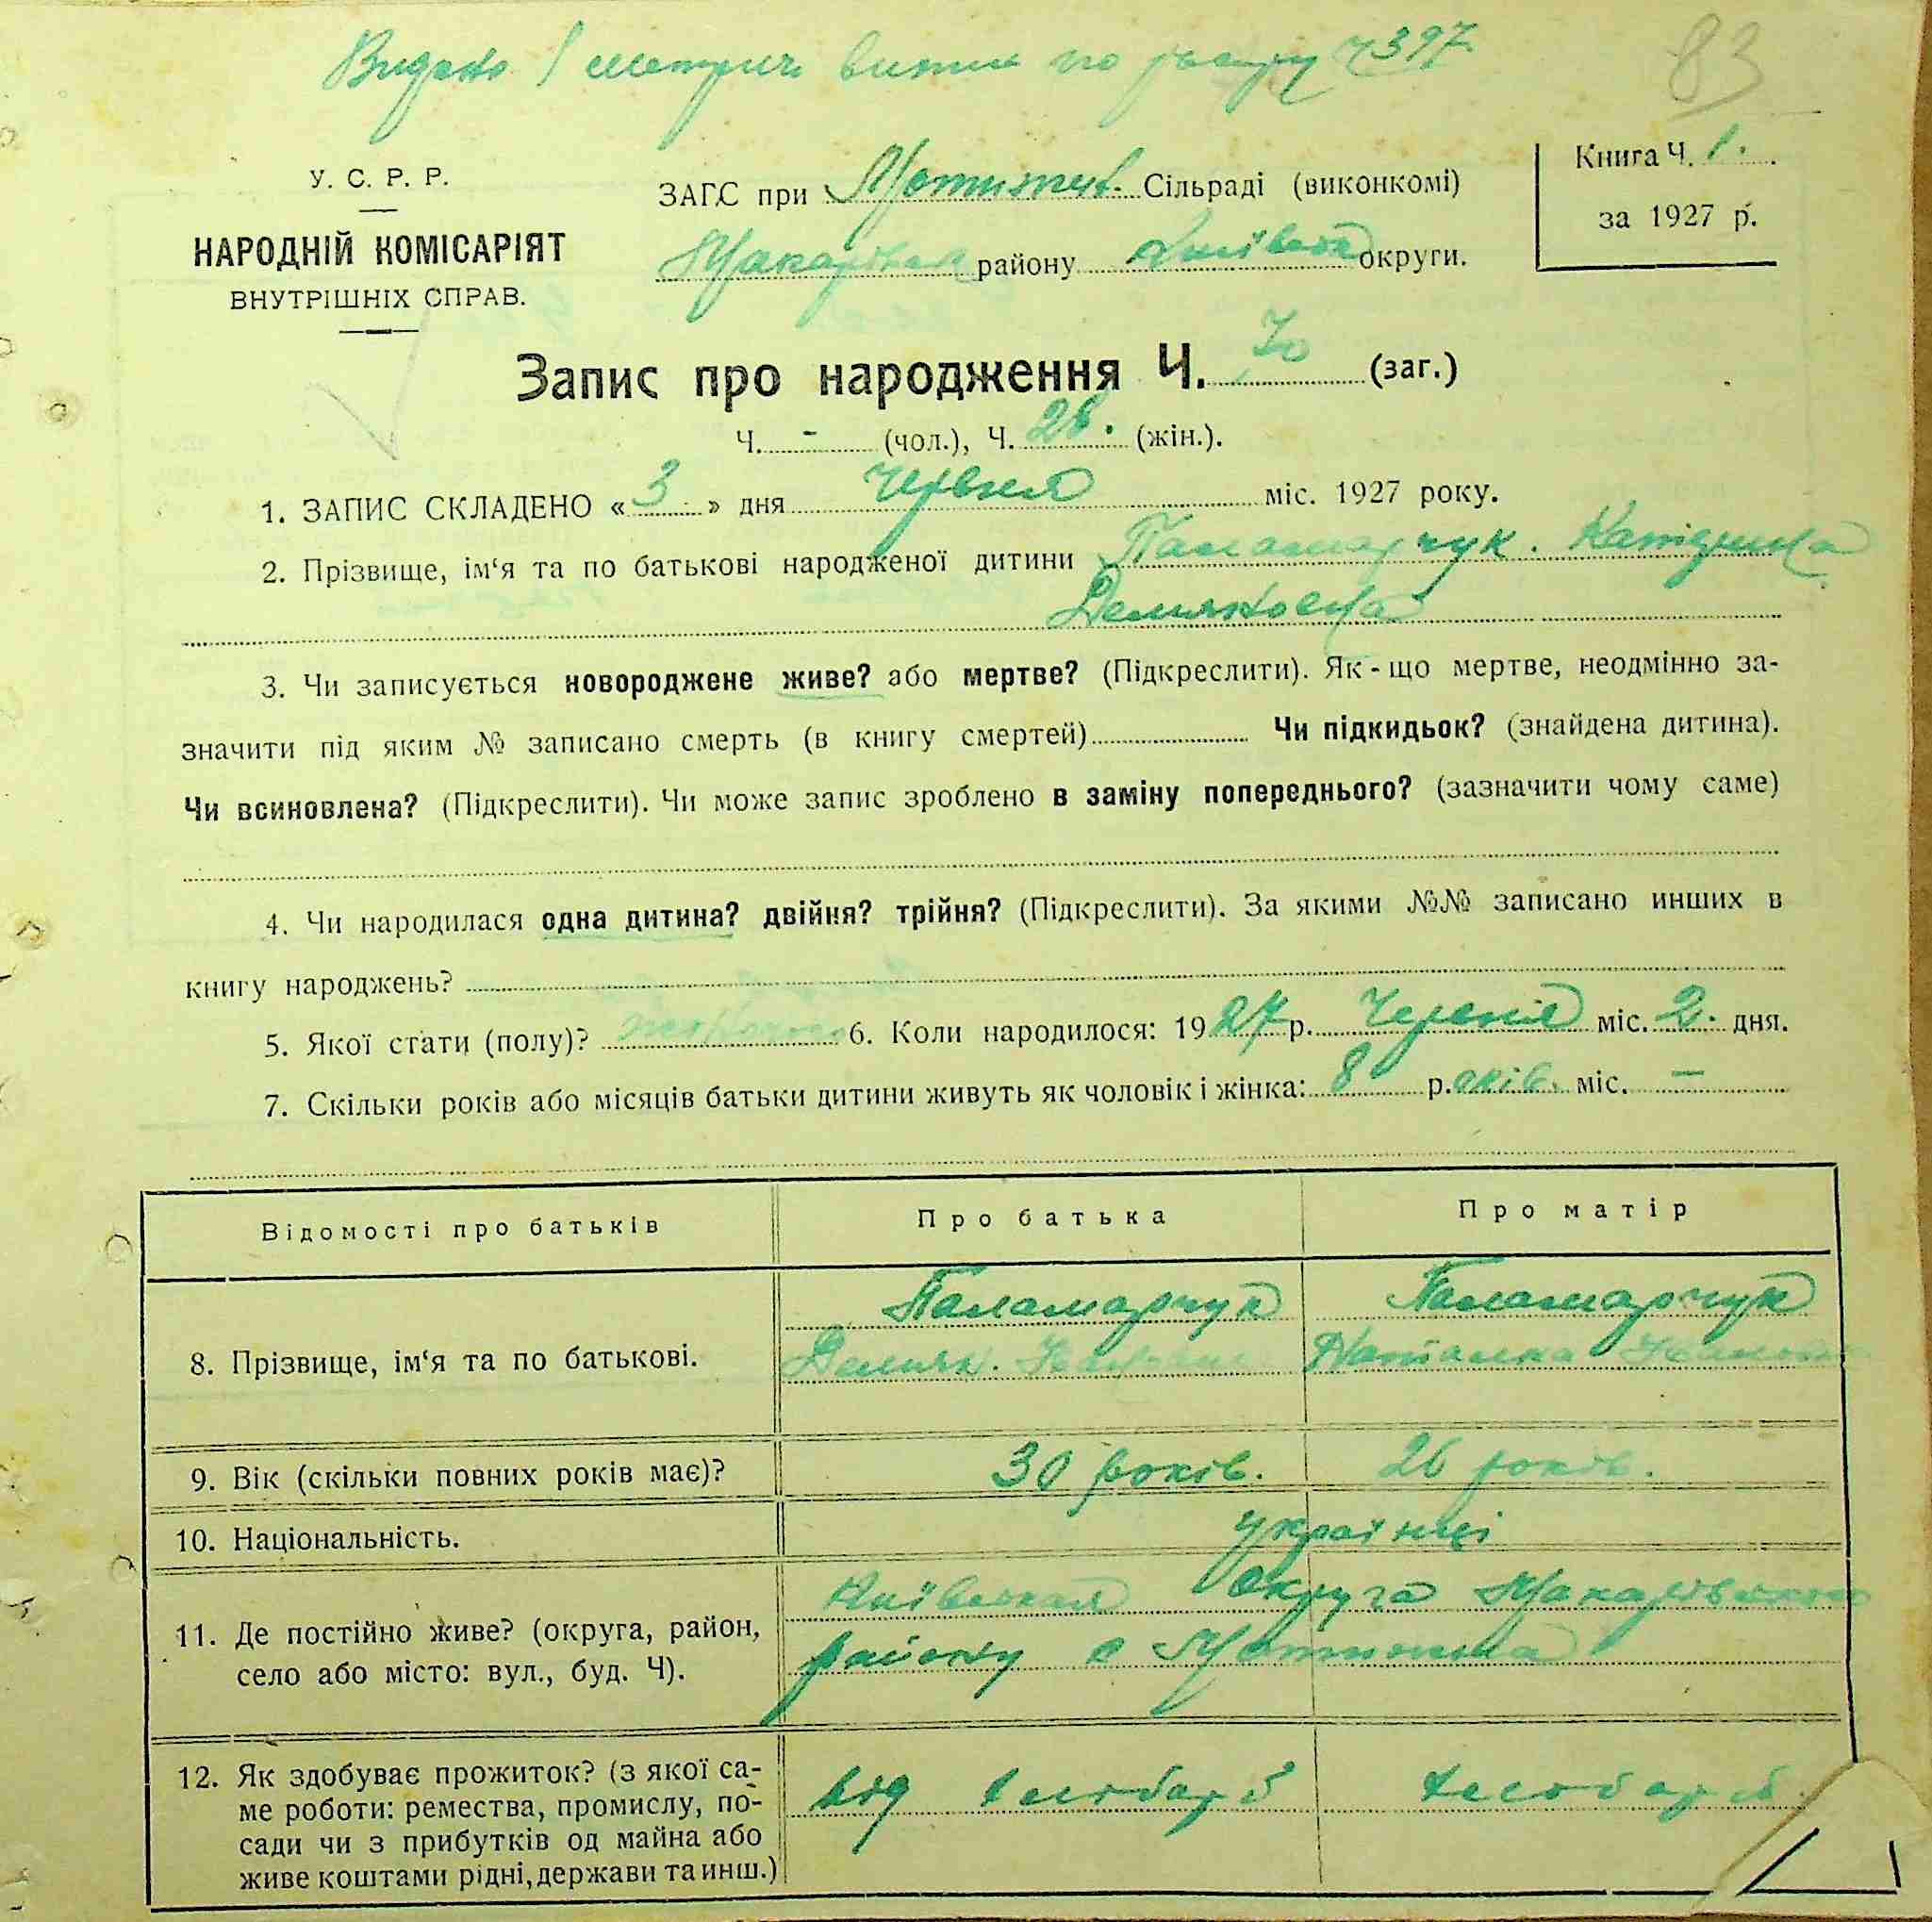 Видано 1 метрич. по 397
83
У. С. Р. Р.
НАРОДНІЙ КОМІСАРІЯТ
ВНУТРІШНІХ СПРАВ.
ЗАГС при Мотижин. Сільраді (виконкомі)
Макарівськ району Київськ округи.
Книга Ч. 1.
за 1927 р.
Запис про народження Ч. 70 (заг.)
Ч. - (чол.), Ч. 28. (жін.).
1. ЗАПИС СКЛАДЕНО «3» дня червня міс. 1927 року.
2. Прізвище, ім‘я та по батькові народженої дитини Паламарчук. Катерина
Демяновна
3. Чи записується новороджене живе? або мертве? (Підкреслити). Як-що мертве, неодмінно за-
значити під яким № записано смерть (в книгу смертей) Чи підкидьок? (знайдена дитина).
Чи всиновлена? (Підкреслити). Чи може запис зроблено в заміну попереднього? (зазначити чому саме)
4. Чи народилася одна дитина? двійня? трійня? (Підкреслити). За якими №№ записано инших в
книгу народжень?
5. Якої стати (полу)? 6. Коли народилося: 1927 р. Червня міс. 2. дня.
7. Скільки років або місяців батьки дитини живуть як чоловік і жінка: 8 років. міс. —
Відомості про батьків Про батька Про матір
8. Прізвище, ім‘я та по батькові.
Паламарчук Паламарчук
Демян. Наталка
9. Вік (скільки повних років має)? 30 років. 26 років.
10. Національність. Українці
11. Де постійно живе? (округа, район,
село або місто: вул., буд. Ч).
Київська Округа Макарівського
району с Мотижина
12. Як здобуває прожиток? (з якої са-
ме роботи: ремества, промислу, по-
сади чи з прибутків од майна або
живе коштами рідні, держави та инш.)
від хлібороб хлібороб